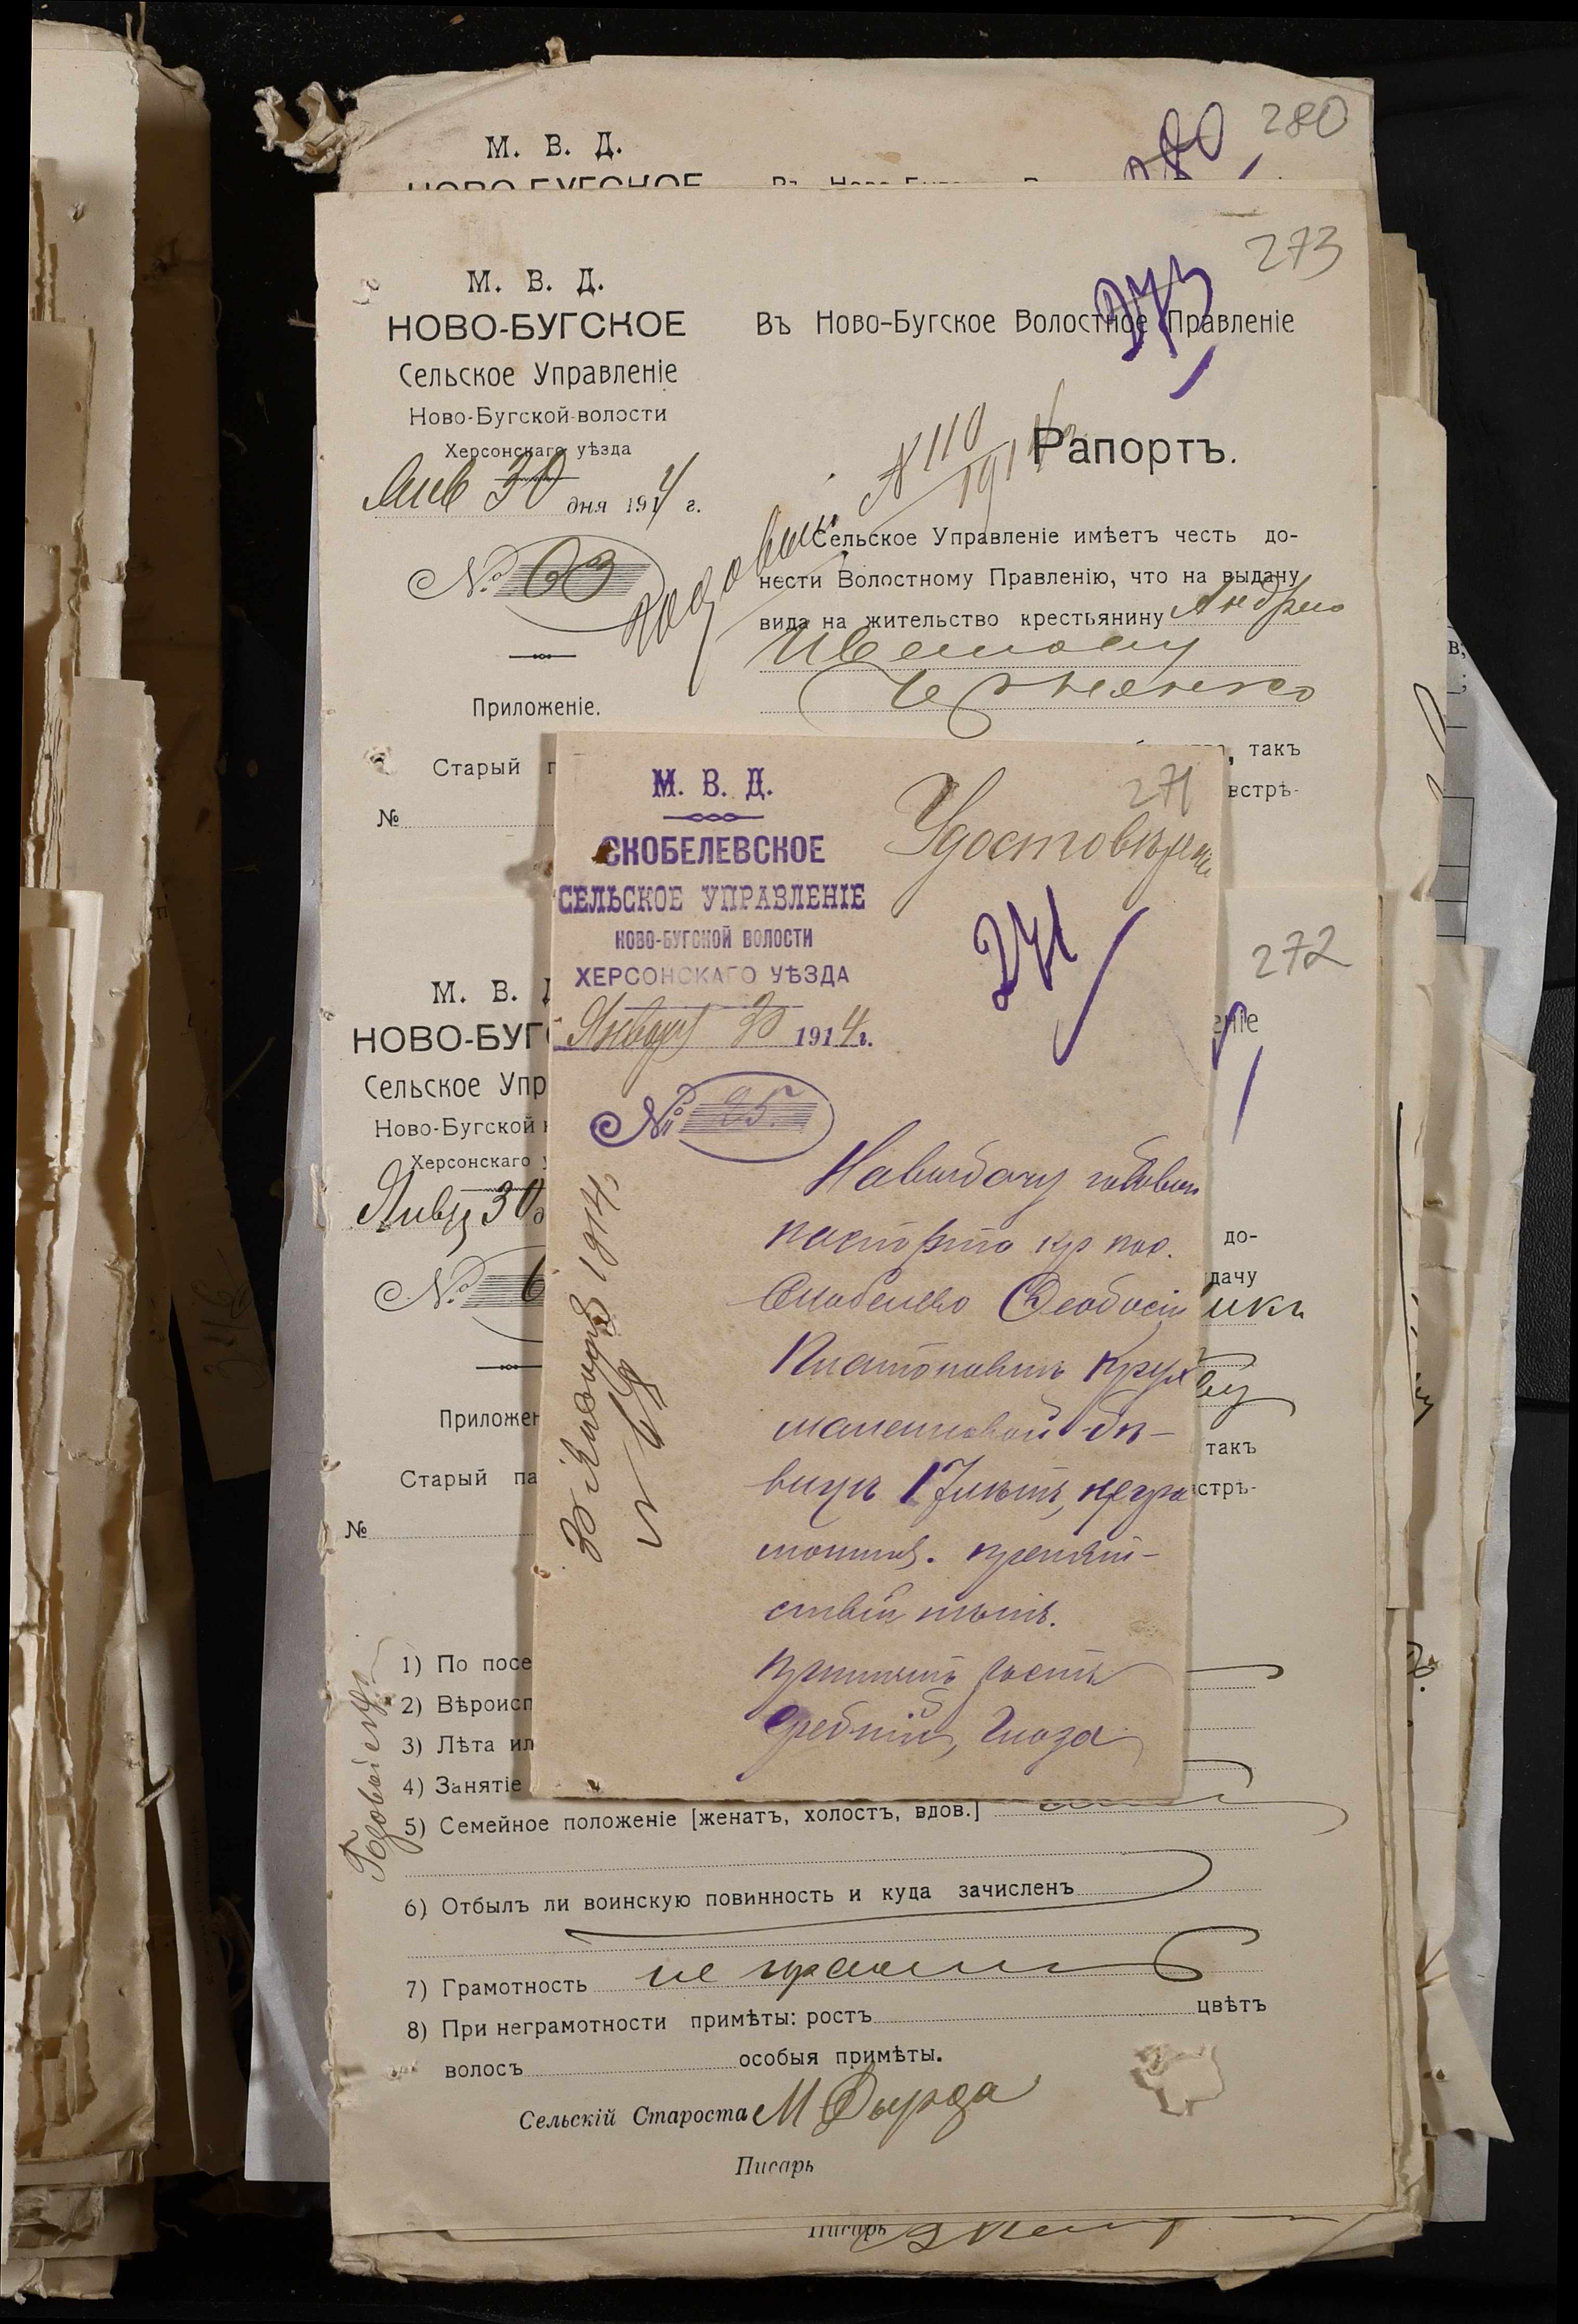 280
М. В. Д.
НОВО-БУГСКОЕ
280
273
М. В. Д.
НОВО-БУГСКОЕ
Сельское Управленіе
Ново-Бугской волости
Херсонскаго уѣзда
Янв 30 дня 1914 г.
№ 63
Приложеніе.
Старый
№
273
Въ Ново-Бугское Волостное Правленіе
№ 110
Рапортъ.
годовый
Сельское Управленіе имѣетъ честь до-
нести Волостному Правленію, что на выдачу
вида на жительство крестьянину Андрею
Ивanову
, такъ
встрѣ-
М. В. Д.
СКОБЕЛЕВСКОЕ
СЕЛЬСКОЕ УПРАВЛЕНІЕ
НОВО-БУГСКОЙ ВОЛОСТИ
ХЕРСОНСКАГО УѢЗДА
Января 30 1914 г.
№ 25
271
Удостовѣреніе
271
На выдачу годовый
паспорта кр пос.
Скобелево Ѳеодосіи
Платоновнѣ Крух
маленковой дѣ-
вицѣ 17 лѣтъ, негра
мотна. препят-
ствій нѣтъ.
примѣтъ ростъ
средній, глаза
30 Января 1914
272
М. В.
НОВО-БУГ
Сельское Упр
Ново-Бугской
Херсонскаго
Янвр 30
№ 6
Приложен
Старый па
№
еніе
до-
дачу
такъ
стрѣ-
Годовой
1) По посе
2) Вѣроисп
3) Лѣта ил
4) Занятіе
5) Семейное положеніе [женатъ, холостъ, вдов.]
6) Отбылъ ли воинскую повинность и куда зачисленъ
7) Грамотность не грамот
8) При неграмотности примѣты: ростъ цвѣтъ
волосъ особыя примѣты.
Сельскій Староста
Писарь
Писарь